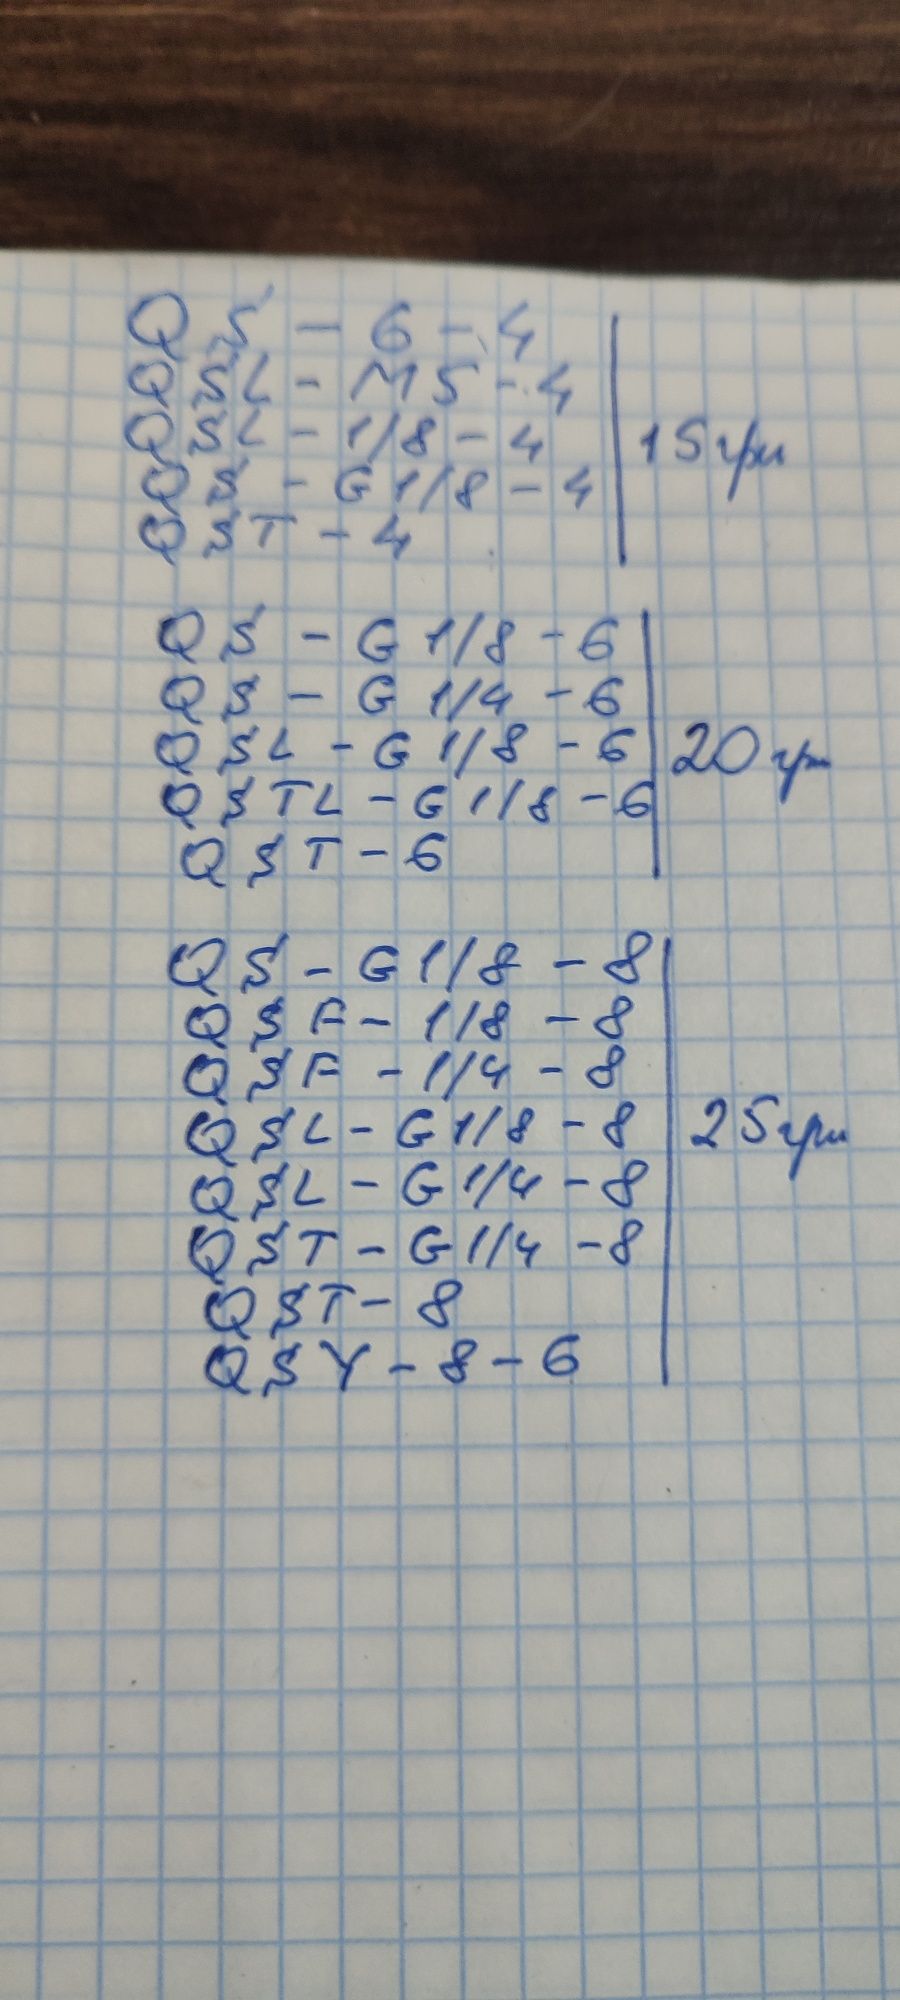 QS - 6 - 4
QSL - M5 - 4
QSL - 1/8 - 4
15 грн
QS - G1/8 - 4
QST - 4
QS - G1/8 - 6
QS - G1/4 - 6
QSL - G1/8 - 6
20 грн
QSTL - G1/8 - 6
QST - 6
QS - G1/8 - 8
QSF - 1/8 - 8
QSF - 1/4 - 8
QSL - G1/8 - 8
25 грн
QSL - G1/4 - 8
QST - G1/4 - 8
QST - 8
QSY - 8 - 6